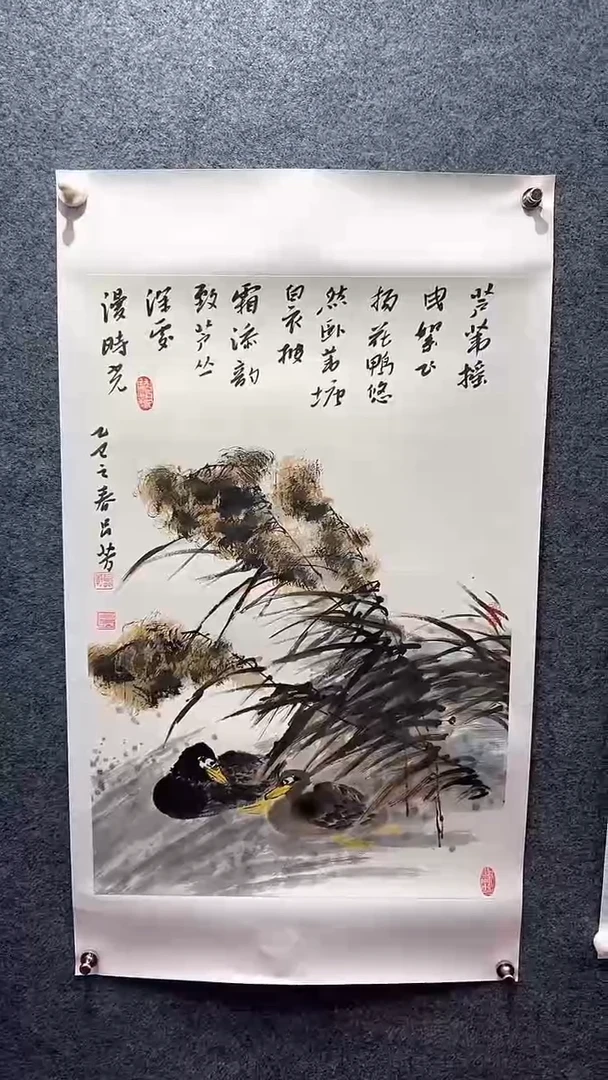 芦苇摇
曳絮飞
扬花鸭悠
然卧苇塘
白衣披
霜添韵
致芦丛
深处
漫時光
乙巳之春吕芳